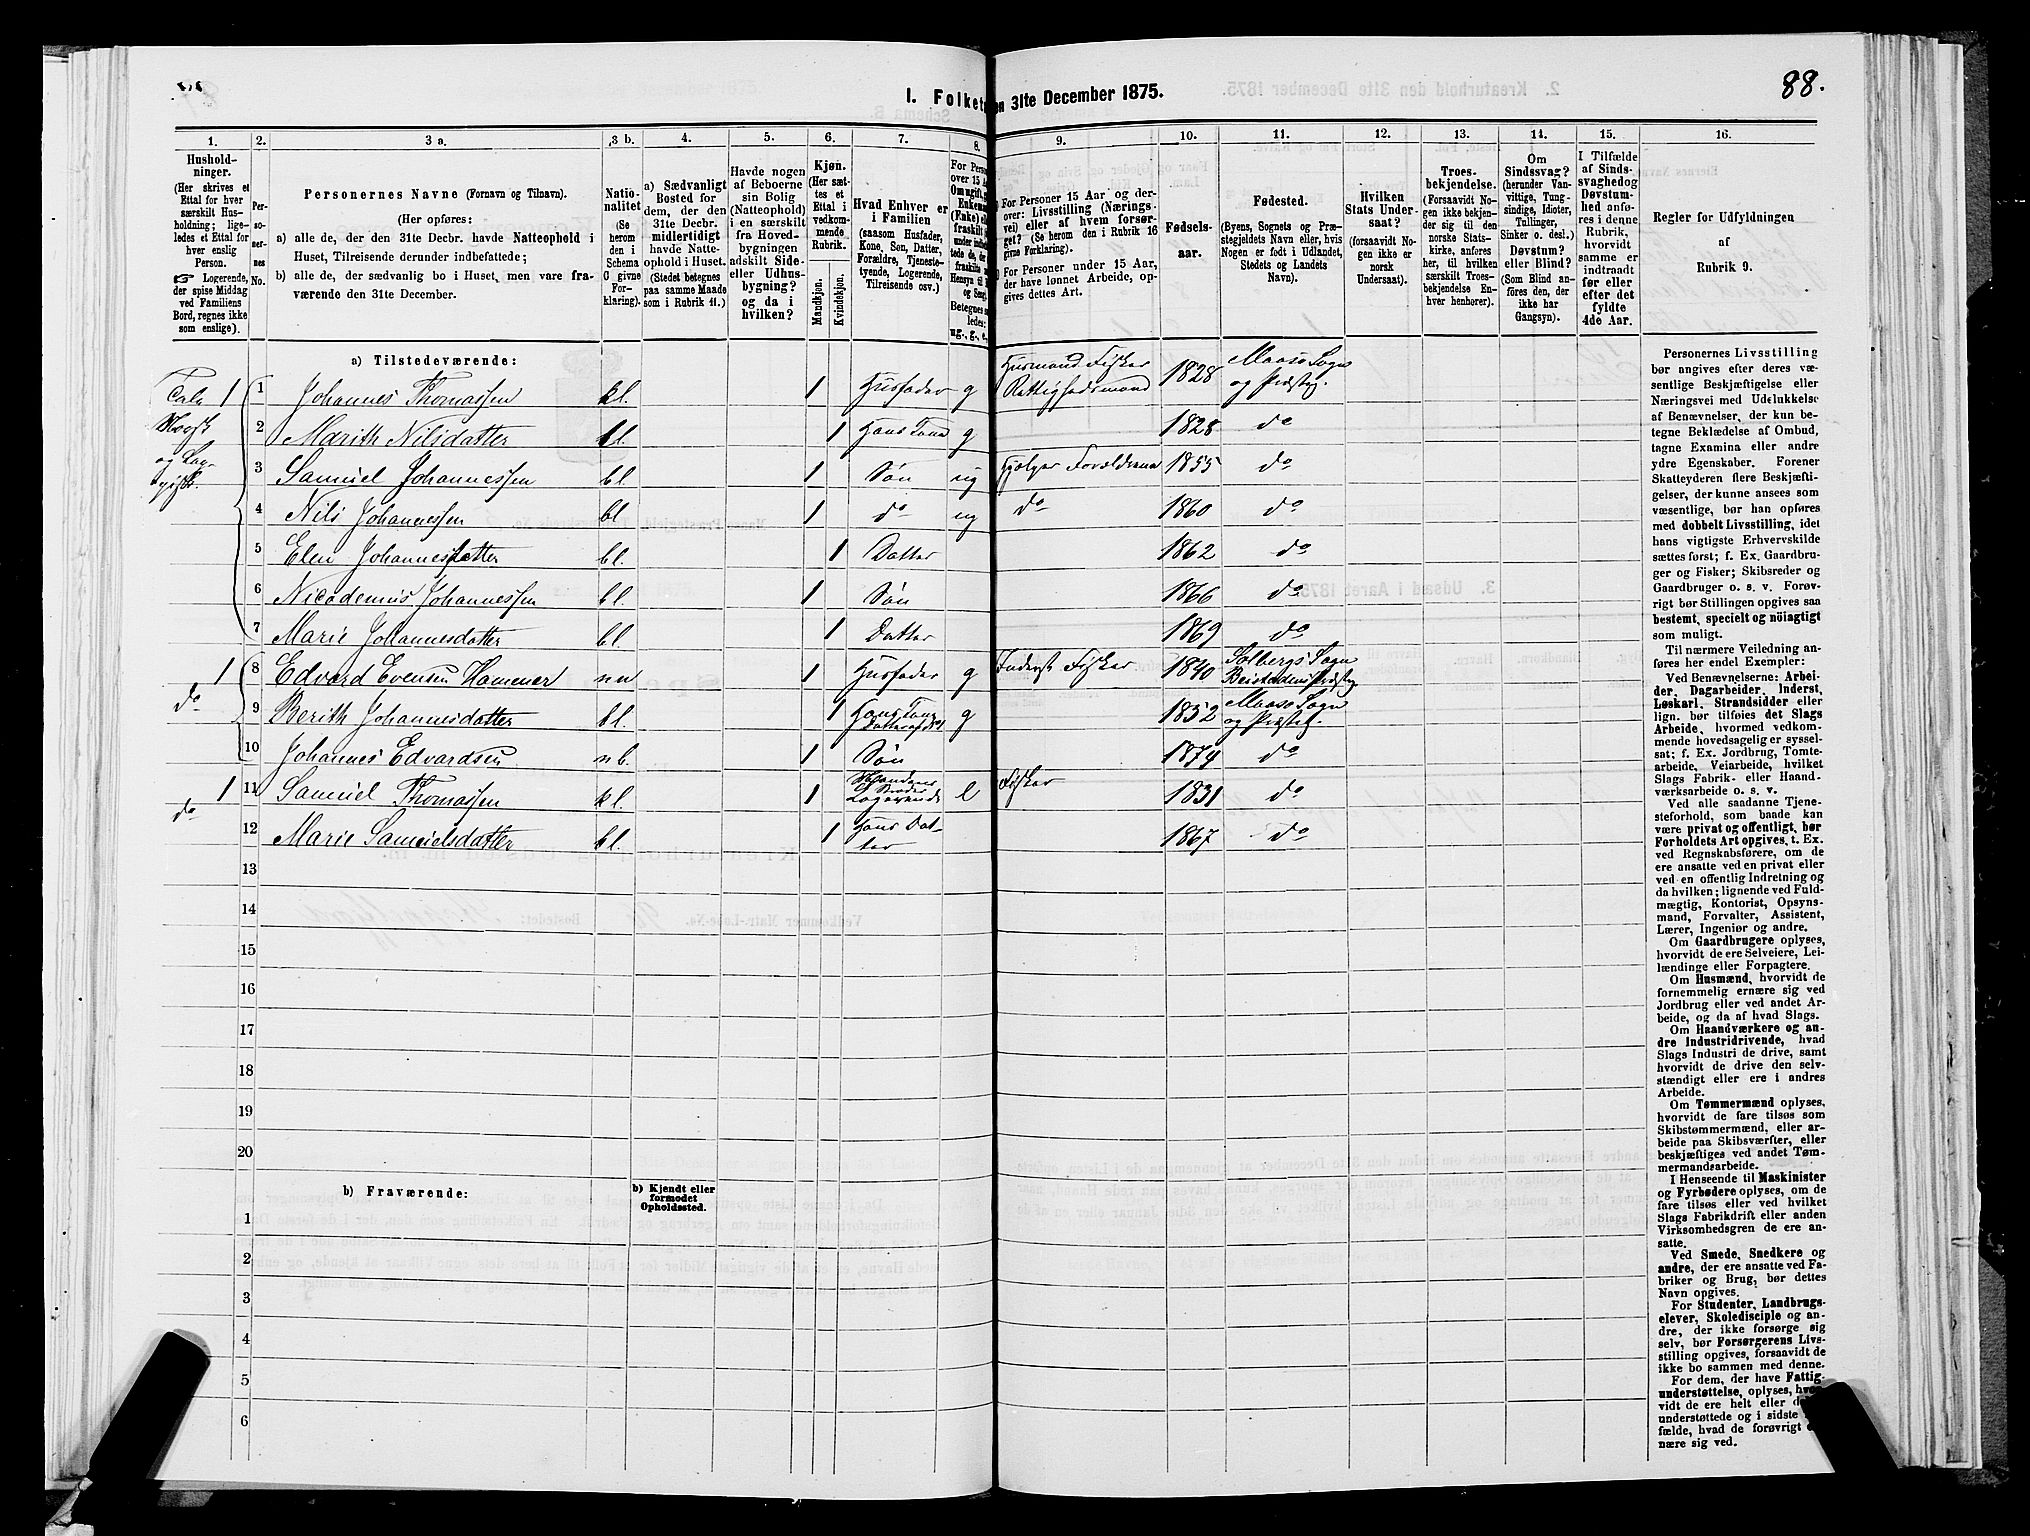 88.
I. Folket
en 31te December 1875.
1.
2.
3 a.
3 b.
4.
5.
6.
7.
8.
9.
10.
11.
12.
13.
14.
15.
16.
Hushold-
ninger.
(Her skrives et
Ettal for hver
særskilt Hus-
holdning; lige-
ledes et Ettal for
hver enslig
Person.
☞ Logerende,
der spise Middag
ved Familiens
Bord, regnes ikke
som enslige).
Per-
so-
ner-
nes
No.
Personernes Navne (Fornavn og Tilnavn).
(Her opføres:
a) alle de, der den 31te Decbr. havde Natteophold i
Huset, Tilreisende derunder indbefattede;
b) alle de, der sædvanlig bo i Huset, men vare fra-
værende den 31te December.
Natio-
nalitet
(Se
herom
den i
Schema
C givne
For-
klaring).
a) Sædvanligt
Bosted for
dem, der den
31te Decbr.
midlertidigt
havde Natte-
ophold i Huset.
(Stedet betegnes
paa samme Maade
som i Rubrik 11.)
Havde nogen
af Beboerne
sin Bolig
(Natteophold)
i en særskilt
fra Hoved-
bygningen
adskilt Side-
eller Udhus-
bygning?
og da i
hvilken?
Kjøn.
(Her sæt-
tes et
Ettal i
vedkom-
mende
Rubrik.
Mandkjøn.
Kvindekjøn.
Hvad Enhver er
i Familien
(saasom Husfader,
Kone, Søn, Datter,
Forældre, Tjeneste-
tyende, Logerende,
Tilreisende osv.)
For Person
over 15 A
Om ugift, g
Enkem
(Enke) el
fraskilt
Betegnes s
ledes:
ug., g., e.,
For Personer 15 Aar og der-
over: Livsstilling (Nærings-
vei) eller af hvem forsør-
get? (Se herom den i Rubrik 16
givne Forklaring).
For Personer under 15 Aar,
der have lønnet Arbeide, op-
gives dettes Art.
Fødsels-
aar.
Fødested.
(Byens, Sognets og Præ-
stegjeldets Navn eller, hvis
Nogen er født i Udlandet,
Stedets og Landets
Navn).
Hvilken
Stats Under-
saat?
(forsaavidt No-
gen ikke er
norsk
Undersaat).
Troes-
bekjendelse.
(Forsaavidt No-
gen ikke bekjen-
der sig til den
norske Stats-
kirke, anføres
her, til hvilken
særskilt Troes-
bekjendelse En-
hver henhører).
Om
Sindssvag?
(herunder Van-
vittige, Tung-
sindige, Idioter,
Tullinger,
Sinker o. desl.)
Døvstum?
eller Blind?
(Som Blind an-
føres den, der
ikke har
Gangsyn).
I Tilfælde
af Sinds-
svaghed og
Døvstum-
hed anfø-
res i denne
Rubrik,
hvorvidt
samme er
indtraadt
før eller
efter det
fyldte
4de Aar.
Regler for Udfyldningen
af
Rubrik 9.
a) Tilstedeværende:
1 1 Johannes Thomassen kl. 1 Husfader g Husmand Fisker Rettighedsmand 1828 Maasø Sogn og Præstg.
2 Marith Nilsdatter bl. 1 Hans Kone g 1828 do
3 Samuel Johannessen bl 1 Søn ug Hjelper Forældrene 1855 do
4 Nils Johannessen bl 1 do ug do 1860 do
5 Elen Johannesdatter bl. 1 Datter 1862 do
6 Nicodemus Johannessen bl. 1 Søn 1866 do
7 Marie Johannesdatter bl. 1 Datter 1869 do
1 8 Edvard Evensen Hammer nn 1 Husfader g Inderst Fisker 1840 Solbergs Sogn Beistadens Præstg
do 9 Berith Johannesdatter bl. 1 Hans Kone g 1852 Maasø Sogn og Præsteg.
10 Johannes Edvardsen nb. 1 Søn 1874 do
1 11 Samuel Thomassen kl. 1 Mandens Broder Logerende e Fisker 1831 do
do 12 Marie Samuelsdatter bl. 1 Hans Datter 1867 do
13
14
15
16
17
18
19
20
b) Fraværende:
b) Kjendt eller
formodet
Opholdssted.
1
2
3
4
5
6
Personernes Livsstilling
bør angives efter deres væ-
sentlige Beskjæftigelse eller
Næringsvei med Udelukkelse
af Benævnelser, der kun be-
tegne Beklædelse af Ombud,
tagne Examina eller andre
ydre Egenskaber. Forener
Skatteyderen flere Beskjæfti-
gelser, der kunne ansees som
væsentlige, bør han opføres
med dobbelt Livsstilling, idet
hans vigtigste Erhvervskilde
sættes først; f. Ex. Gaardbru-
ger og Fisker; Skibsreder og
Gaardbruger o. s. v. Forøv-
rigt bør Stillingen opgives saa
bestemt, specielt og nöiagtigt
som muligt.
Til nærmere Veiledning an-
føres her endel Exempler:
Ved Benævnelserne: Arbei-
der, Dagarbeider, Inderst,
Løskarl, Strandsidder eller
lign. bør tilføies det Slags
Arbeide, hvormed vedkom-
mende hovedsagelig er syssel-
sat; f. Ex. Jordbrug, Tomte-
arbeide, Veiarbeide, hvilket
Slags Fabrik- eller Haand-
værksarbeide o. s. v.
Ved alle saadanne Tjene-
steforhold, som baade kan
være privat og offentligt, bør
Forholdets Art opgives, t. Ex.
ved Regnskabsførere, om de
ere ansatte ved en privat eller
ved en offentlig Indretning og
da hvilken; lignende ved Fuld-
mægtig, Kontorist, Opsyns-
mand, Forvalter, Assistent,
Lærer, Ingeniør og andre.
Om Gaardbrugere oplyses,
hvorvidt de ere Selveiere, Lei-
lændinge eller Forpagtere.
Om Husmænd, hvorvidt de
fornemmelig ernære sig ved
Jordbrug eller ved andet Ar-
beide, og da af hvad Slags.
Om Haandværkere og an-
dre Industridrivende, hvad
Slags Industri de drive, samt
hvorvidt de drive den selv-
stændigt eller ere i andres
Arbeide.
Om Tømmermænd oplyses,
hvorvidt de fare tilsøs som
Skibstømmermænd, eller ar-
beide paa Skibsværfter, eller
beskjæftiges ved andet Tøm-
mermandsarbeide.
I Henseende til Maskinister
og Fyrbødere oplyses, om de
fare tilsøs eller ved hvilket
Slags Fabrikdrift eller anden
Virksomhedsgren de ere an-
satte.
Ved Smede, Snedkere og
andre, der ere ansatte ved Fa-
briker og Brug, bør dettes
Navn opgives.
For Studenter, Landbrugs-
elever, Skoledisciple og an-
dre, der ikke forsørge sig
selv, bør Forsørgerens Livs-
stilling opgives, forsaavidt de
ikke bo sammen med denne.
For dem, der have Fattig-
understøttelse, oplyses,
vidt de ere helt eller
understøttede og i sidste
fælde, hvad de forøvrigt
nære sig ved.